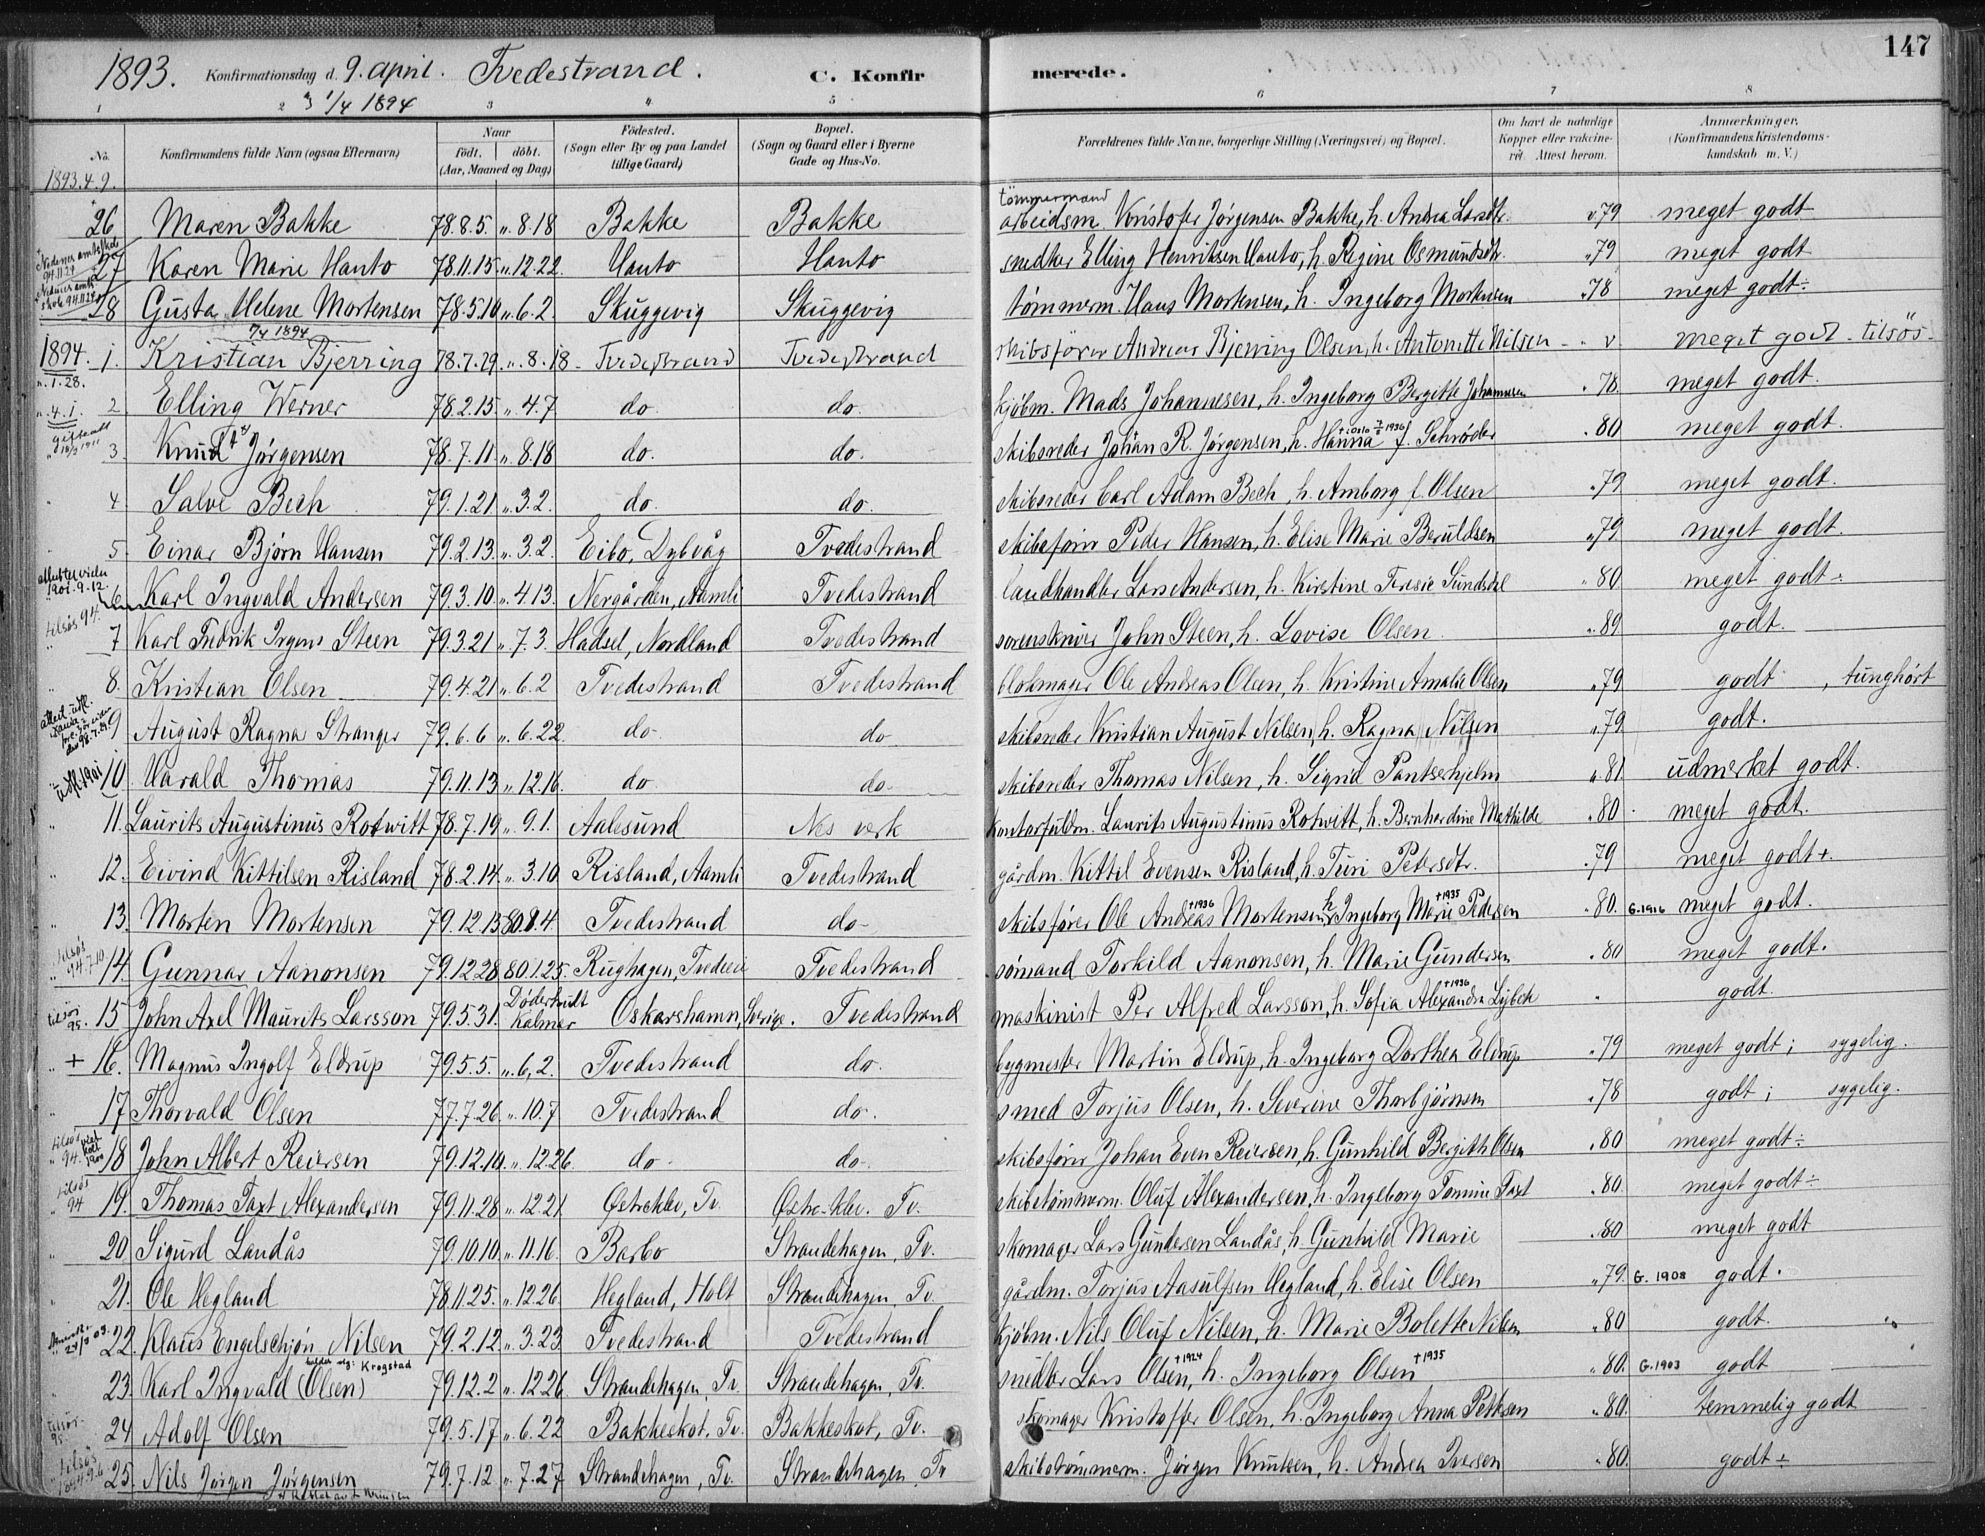 147
1893. Konfirmationsdag d. 9. april. Tvedestrand. C. Konfirmerede.
1/4 1894
1 2 3 4 5 6 7 8
No. Konfirmandens fulde Navn (ogsaa Efternavn) Naar født, døbt. (Aar, Maaned og Dag) Fødested. (Sogn eller By og paa Landet tillige Gaard) Bopæl. (Sogn og Gaard eller i Byerne Gade og Hus-No. Forældrenes fulde Navne, borgerlige Stilling (Næringsvei) og Bopæl. Om havt de naturlige Kopper eller vakcineret. Attest herom. Anmærkninger. (Konfirmandens Kristendomskundskab m. V.)
1893.4.9.
26 Maren Bakke 78.8.5. „ 8.18 Bakke Bakke tömmermand arbeidsm. Kristofer Jörgensen Bakke, h. Andrea Larsdtr. v 79 meget godt
27 Karen Marie Hanto 78.11.15 „ 12.22. Hanto Hanto snedker Elling Henriksen Hanto, h. Regine Osmundsdtr. „79 meget godt
28 Gusta Helene Mortensen 78.5.10 „ 6.2. Skuggevig Skuggevig tømmerm. Hans Mortensen, h. Ingeborg Mortensen „78 meget godt ÷
1894. 1. Kristian Bjerring 78.7.29. „ 8.18 Tvedestrand Tvedestrand skibsfører Andreas Bjerring Olsen, h. Antonette Nilsen „ v meget godt - tilsös
„.1.28.
„.4.1. 2. Elling Werner 78.2.15. „ 4.7 do. do. kjøbm. Mads Johannesen, h. Ingeborg Bergitte Johannesen „ 78. meget godt.
3. Knud Jørgensen 78.7.11. „ 8.18 do. do. skibsreder Johan R. Jørgensen, h. Hanna f. Schrøder „ 80 meget godt.
4. Salve Bech 79.1.21. „ 3.2. do. do. skibsreder Carl Adam Bech, h. Amborg f. Olsen „79 meget godt.
5. Einar Bjørn Hansen 79.2.13. „ 3.2. Eibo, Dybvåg Tvedestrand skibsfører Peder Hansen, h. Elise Marie Beruldsen „79 meget godt.
6. Karl Ingvald Andersen 79.3.10. „ 4.13. Nergården, Aamli Tvedestrand landhandler Lars Andersen, h. Kirstine Teresie Sundsdal „ 80 meget godt ÷
tilsös 94. 7 Karl Fredrik Irgens Steen 79.3.21 „ 7.3. Hadsel, Nordland Tvedestrand sorenskriver John Steen, h. Lovise Olsen „ 89 godt.
8. Kristian Olsen 79.4.21 „ 6.2 Tvedestrand Tvedestrand blokmager Ole Andreas Olsen, h. Kristine Amalie Olsen „79 godt , tunghört
9 August Ragna Stranger 79.6.6 „ 6.22. do. do skibsreder Kristian August Nilsen, h. Ragna Nilsen „79 godt.
utfl. 1901 10. Harald Thomas 79.11.13 „ 12.16. do do. skibsreder Thomas Nilsen, h. Sigrid Pantserhjelm „.81 udmerket godt.
11. Laurits Augustinus Rotwitt 78.7.19 „ 9.1. Aalesund Nes verk kontorfuldm. Laurits Augustinus Rotwitt, h. Bernhardine Mathilde „ 80 meget godt.
12. Eivind Kittilsen Risland 78.2.14. „ 3.10 Risland, Aamli Tvedestrand gårdm. Kittil Evensen Risland, h. Turi Petersdtr. „79 meget godt +.
13. Morten Mortensen 79.12.13 80.8.4. Tvedestrand do- skibsfører Ole Andreas †1936 Mortensen, h. Ingeborg Marie †1935 Pedersen „80. G. 1916 meget godt.
tilsös 94.7.10 14. Gunnar Aanonsen 79.12.28 80.1.25. Rughagen, Tvedest. Tvedestrand sømand Torkild Aanonsen, h. Marie Gundersen „ 80 meget godt.
tilsör 95. 15 John Axel Maurits Larsson 79.5.31. Døderhult Kalmar Oskarshamn, Sverige. Tvedestrand maskinist Per Alfred Larsson, h. Sofia Alexandra †1936 Lybeck „ godt
+ 16. Magnus Ingolf Eldrup 79.5.5. „ 6.2. Tvedestrand do. bygmester Martin Eldrup, h. Ingeborg Dorthea Eldrup „79 meget godt ; sygelig.
17 Thorvald Olsen 77.7.26 „ 10.7 Tvedestrand do. smed Torjus Olsen, h. Severine Thorbjörnsen „78 godt ; sygelig.
tilsös 94. 18 John Albert Reiersen 79.12.10. „ 12.26. do- do-. skibsfører Johan Even Reiersen, h. Gunhild Bergith Olsen „ 80 meget godt ÷
tilsös 94 19. Thomas Taxt Alexandersen 79.11.28 „ 12.21 Østreklev, Tv. Østre-klev. Tv. skibstømmerm. Oluf Alexandersen, h. Ingeborg Tomine Taxt „ 80. meget godt ÷
20. Sigurd Landås 79.10.10. „ 11.16. Barbo Strandehagen, Tv. skomager Lars Gundersen Landås, h. Gunhild Marie „ 80 meget godt
21. Ole Hegland 78.11.25. „ 12.26. Hegland, Holt Strandehagen, Tv. gårdm. Torjus Aasulfsen Hegland, h. Elise Olsen „79. G. 1908 godt.
24/3 03. 22. Klaus Engelschjøn Nilsen 79.2.12. „ 3.23 Tvedestrand Tvedestrand kjøbm. Nils Oluf Nilsen, h. Marie Bolette Nilsen „ 80 godt.
23. Karl Ingvald (Olsen) kalder sig: Krogstad 79.12.2 „ 12.26 Strandehagen, Tv. Strandehagen, Tv. snedker Lars Olsen †1924, h. Ingeborg Olsen †1935 „ 80. G. 1903 godt
tilsör. 95. 24 Adolf Olsen 79.5.17 „ 6.22 Bakkeskot, Tv. Bakkeskot, Tv. skomager Kristoffer Olsen, h. Ingeborg Anna Pettersen „ 80. temmelig godt
tilsös 25. Nils Jørgen Jørgensen 79.7.12 „ 7.27 Strandehagen, Tv. Strandehagen, Tv skibstømmerm. Jørgen Knutsen, h. Andrea Iversen „ 80. godt ÷